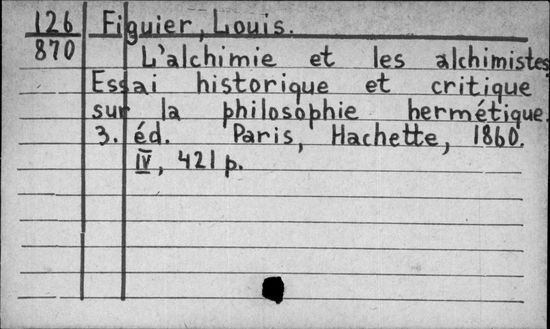 126 Figuier, Louis.
870 L'alchimie et les alchimistes
Essai historique et critique
sur la philosophie hermétique.
3. éd. Paris, Hachette, 1860.
IV, 421 p.